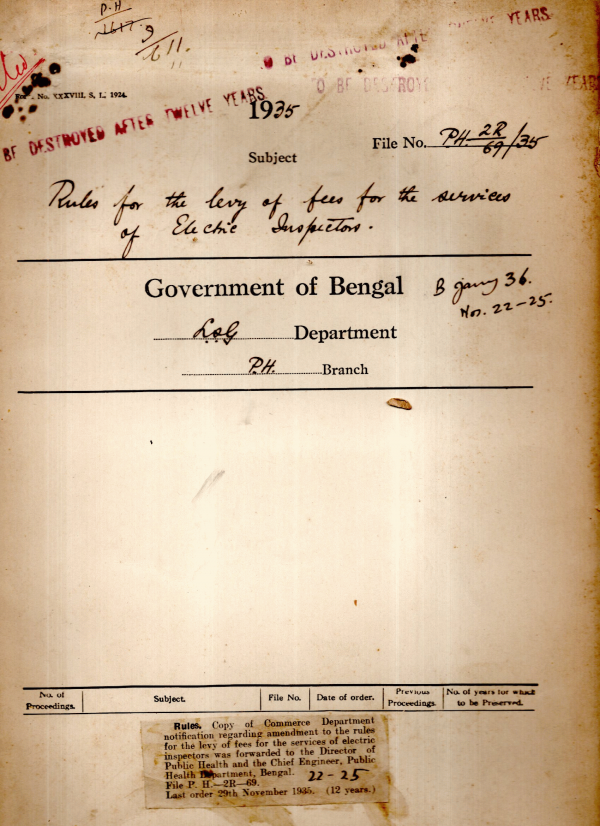 P.H
1617.
9
611.
TO BE DESTROYED AFTE TWELVE YEARS
TO BE DESTROYE VE YEARS
No. XXXVIII, S. L. 1924.
BE DESTROYED AFTER TWELVE YEARS
1935
File No. P.H. 2R/69/35
Subject
Rules for the levy of fees for the services
of Electric Inspectors.
Government of Bengal
B 36.
Nos. 22-25.
L.S.G Department
P.H. Branch
No. of Proceedings. Subject. File No. Date of order. Previous Proceedings. No. of years for which to be Preserved.
Rules. Copy of Commerce Department
notification regarding amendment to the rules
for the levy of fees for the services of electric
inspectors was forwarded to the Director of
Public Health and the Chief Engineer, Public
Health Department, Bengal. 22-25
File P. H.—2R—69.
Last order 29th November 1935. (12 years.)